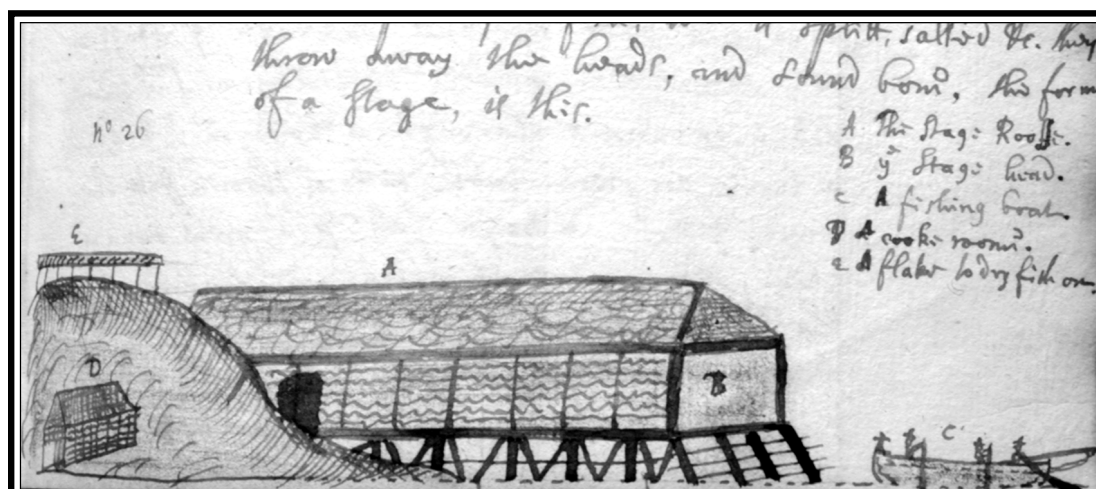 splitt, salted &c. they
throw away the heads, and sound bone, the form
of a stage, is this.
nº 26
A The Stage Roofe.
B yᵉ Stage head.
c A fishing boat.
D A cooke roome.
e A flake to dry fish on.
E
A
D
B
C